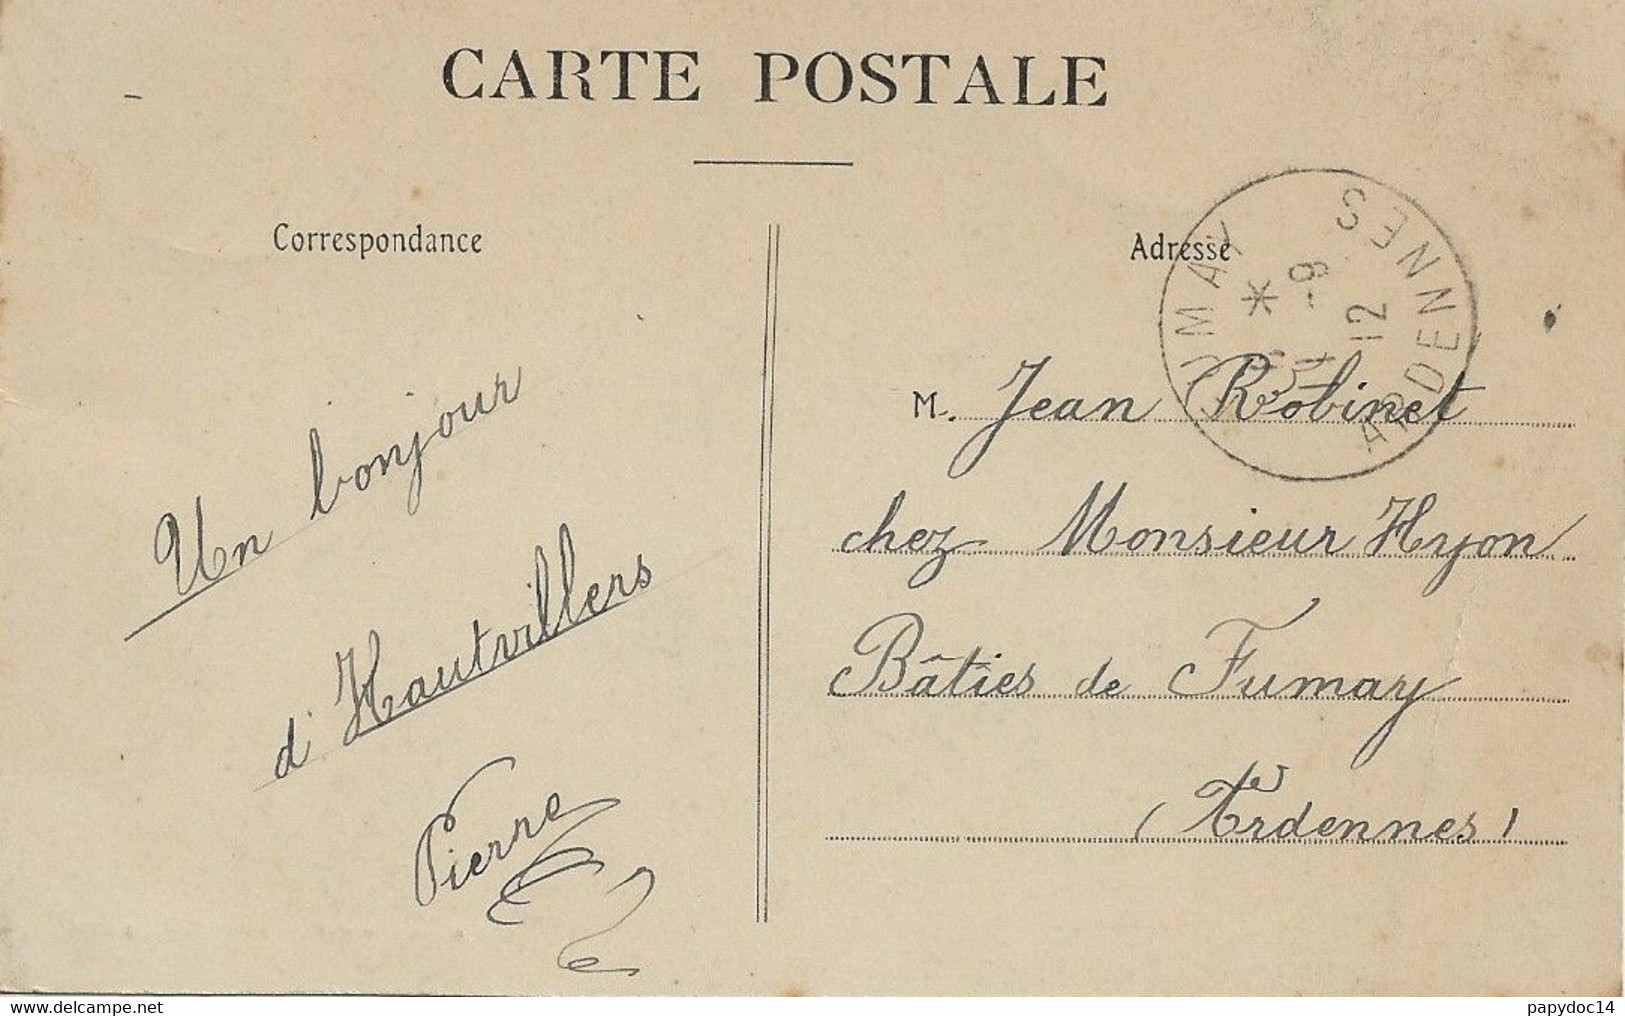 CARTE POSTALE
Correspondance
Un bonjour
d'Hautvillers
Pierre
Adresse
M. Jean Robinet
chez Monsieur Hyon
Bâties de Fumay
(Ardennes)
FUMAY
ARDENNES
* -9
12
papydoc14